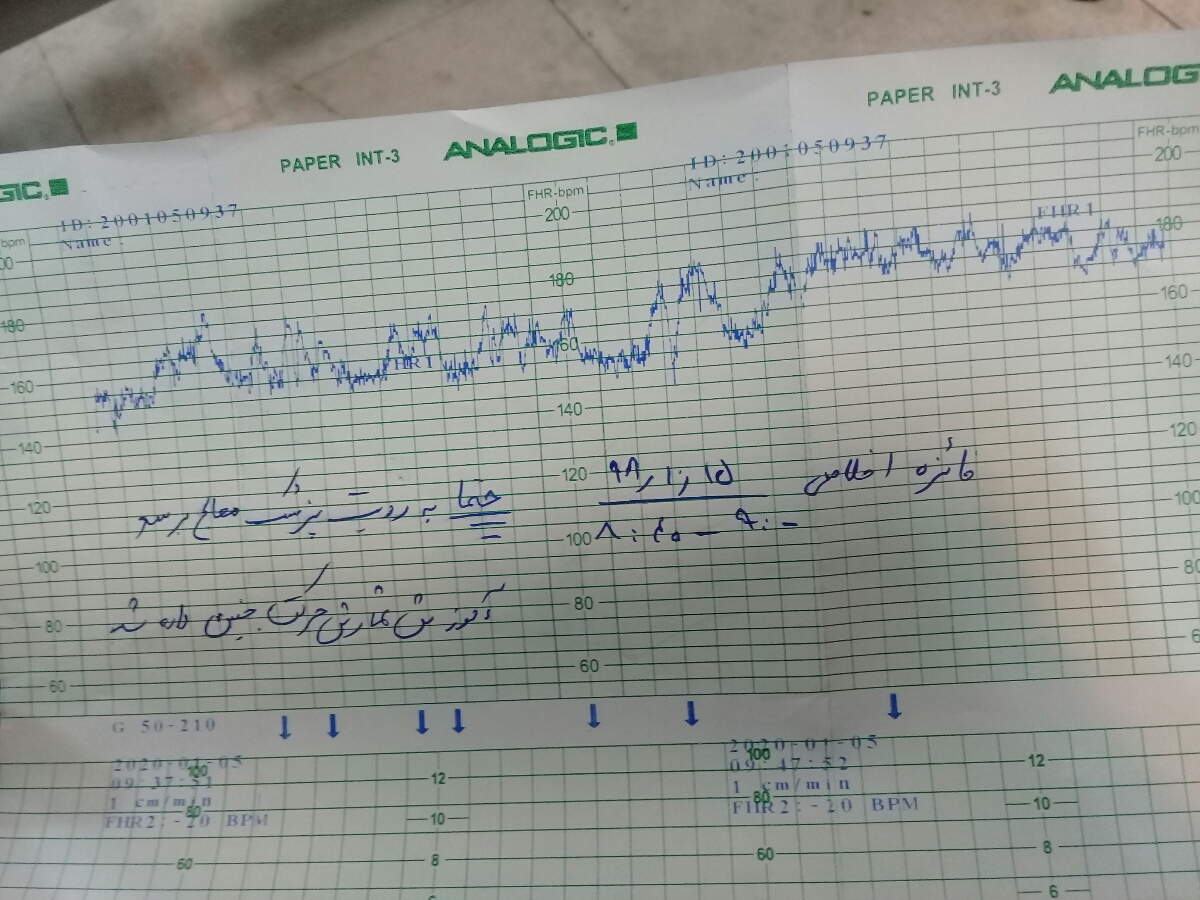 PAPER INT-3 ANALOGIC
PAPER INT-3 ANALOG
GIC
ID: 2001050937
Name :
ID: 2001050937
Name :
bpm
FHR-bpm
FHR-bpm
200
200
180
180
180
160
160
160
140
140
140
120
120
120
100
100
100
80
80
80
60
60
FHR 1
FHR 1
۹۸، ۱۰، ۱۵
۸:۴۵ - ۹:۰
حتما به رویت پزشک معالج برسد
آموزش شمارش حرکت جنین داده شد
G 50-210
2020-01-05
09:37:51
1 cm/min
FHR2: -20 BPM
2020-01-05
09:47:52
1 cm/min
FHR2: -20 BPM
100
80
60
12
10
8
100
80
60
12
10
8
6